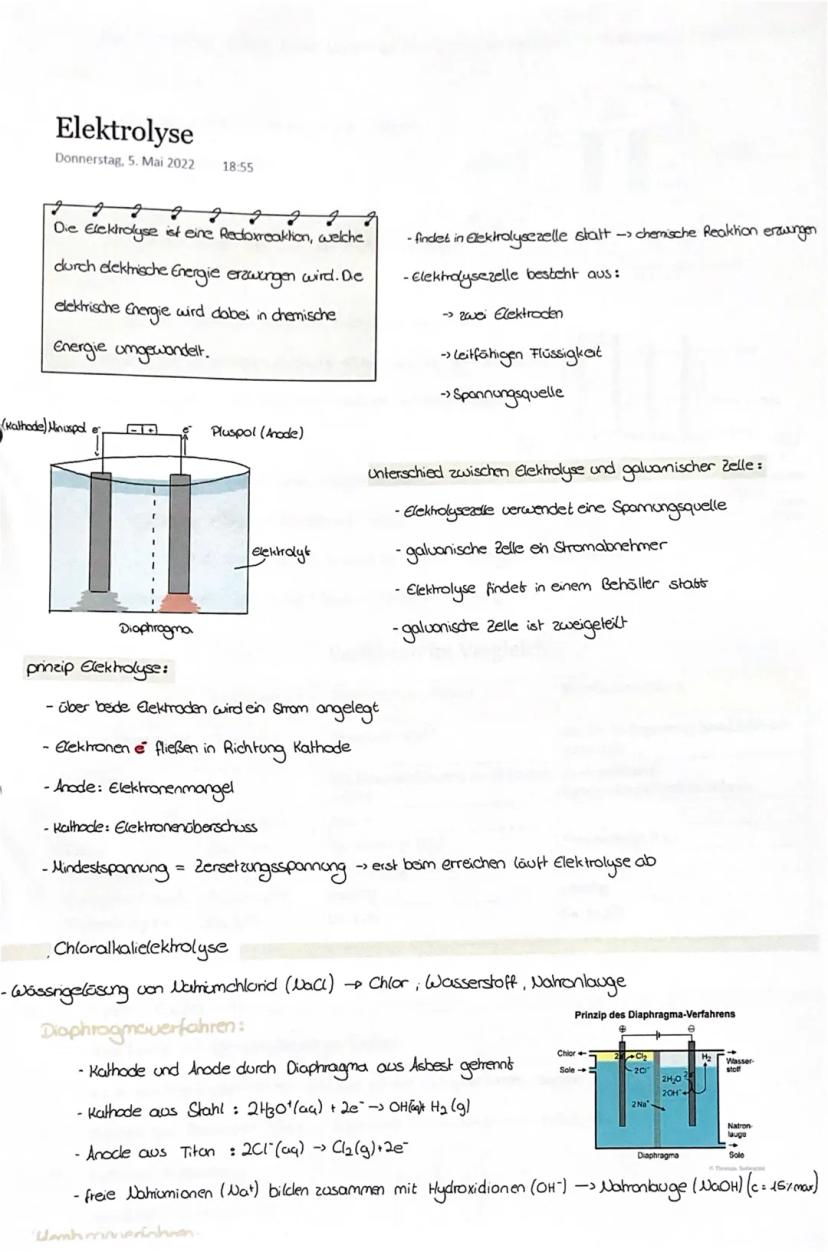 Elektrolyse
Donnerstag, 5. Mai 2022 18:55
Die Elektrolyse ist eine Redoxreaktion, welche
durch elektrische Energie erzwungen wird. Die
elektrische Energie wird dabei in chemische
Energie umgewandelt.
- findet in Elektrolysezelle statt -> chemische Reaktion erzwungen
- Elektrolysezelle besteht aus:
-> zwei Elektroden
-> leitfähigen Flüssigkeit
-> Spannungsquelle
(Kathode) Minuspol e⁻ - | + e⁻ Pluspol (Anode)
Elektrolyt
Diaphragma
Unterschied zwischen Elektrolyse und galvanischer Zelle:
- Elektrolysezelle verwendet eine Spannungsquelle
- galvanische Zelle ein Stromabnehmer
- Elektrolyse findet in einem Behälter statt
- galvanische Zelle ist zweigeteilt
prinzip Elektrolyse:
- über beide Elektroden wird ein Strom angelegt
- Elektronen e⁻ fließen in Richtung Kathode
- Anode: Elektronenmangel
- Kathode: Elektronenüberschuss
- Mindestspannung = Zersetzungsspannung -> erst beim erreichen läuft Elektrolyse ab
Chloralkalielektrolyse
- Wässrigelösung von Natriumchlorid (NaCl) -> Chlor, Wasserstoff, Natronlauge
Diaphragmaverfahren:
- Kathode und Anode durch Diaphragma aus Asbest getrennt
- Kathode aus Stahl : 2H3O⁺(aq) + 2e⁻ -> OH(aq)+ H₂ (g)
- Anode aus Titan : 2Cl⁻(aq) -> Cl₂(g)+2e⁻
- freie Natriumionen (Na⁺) bilden zusammen mit Hydroxidionen (OH⁻) -> Natronlauge (NaOH) (c = 15% max)
Prinzip des Diaphragma-Verfahrens
⊕ ⊖
Chlor
Sole
Cl₂
2Cl⁻
2 Na⁺
2H₂O
2OH⁻
H₂
Wasser-
stoff
Natron-
lauge
Sole
Diaphragma